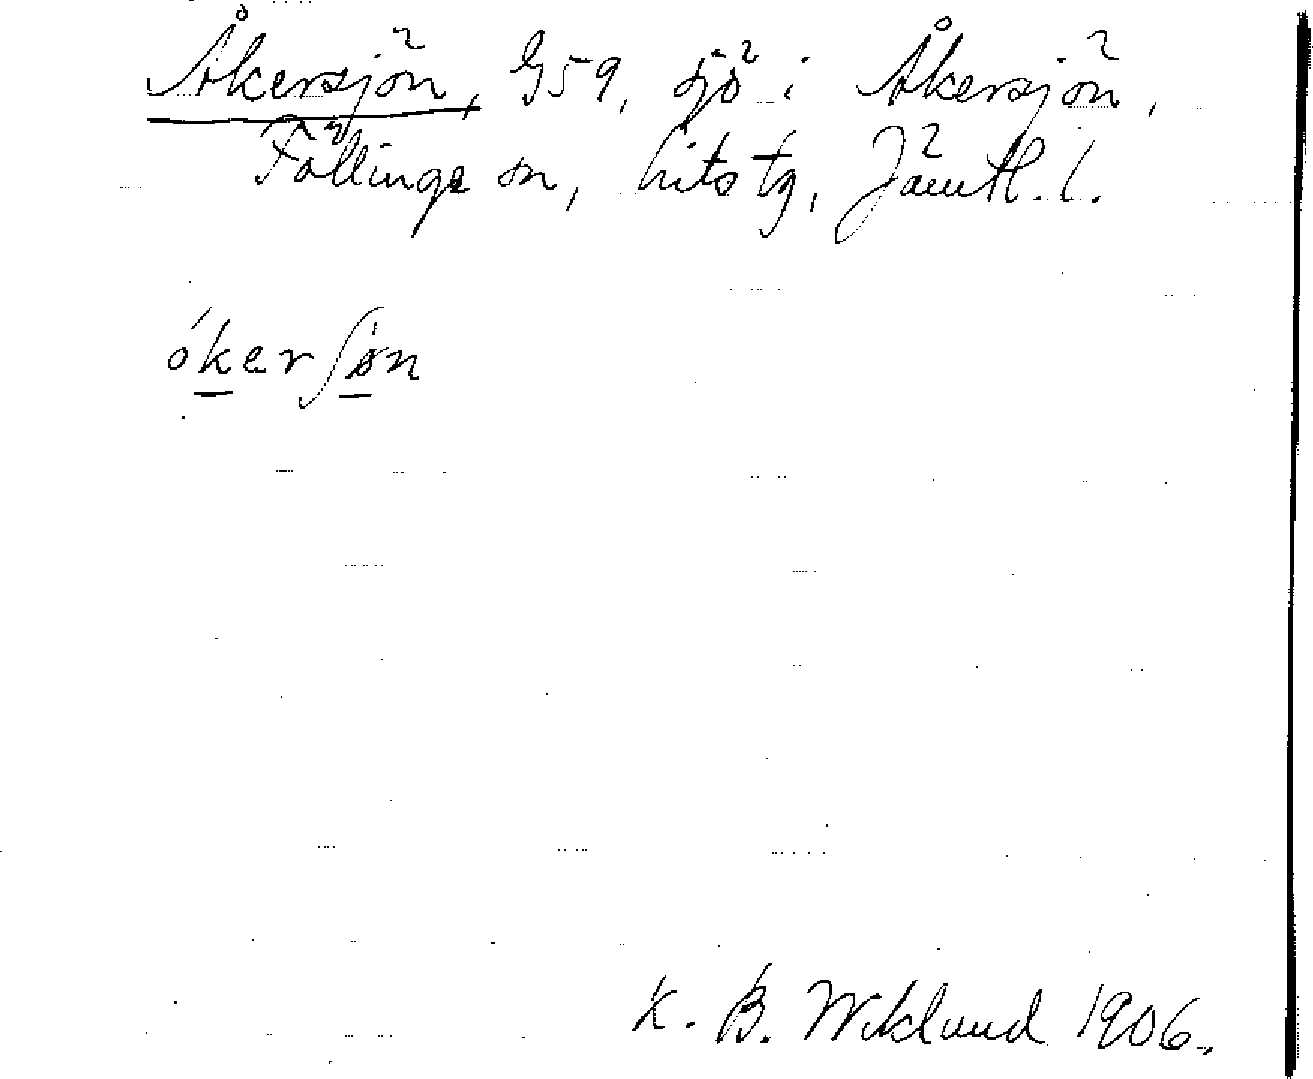 Åkersjön, G59, sjö i Åkersjön,
Föllinge sn, Lits tg, Jämtl. l.
ókerʃøn
K. B. Wiklund 1906.